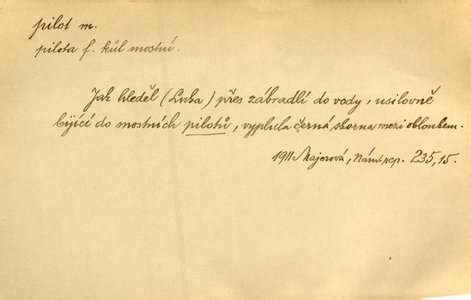 pilot m.
pilota f. kůl mostní.
Jak hleděl (Luka) přes zábradlí do vody, usilovně
bijící do mostních pilotů, vyplula černá skvrna mezi obloukem.
1911 Majerová, Nám. rep. 235,15.